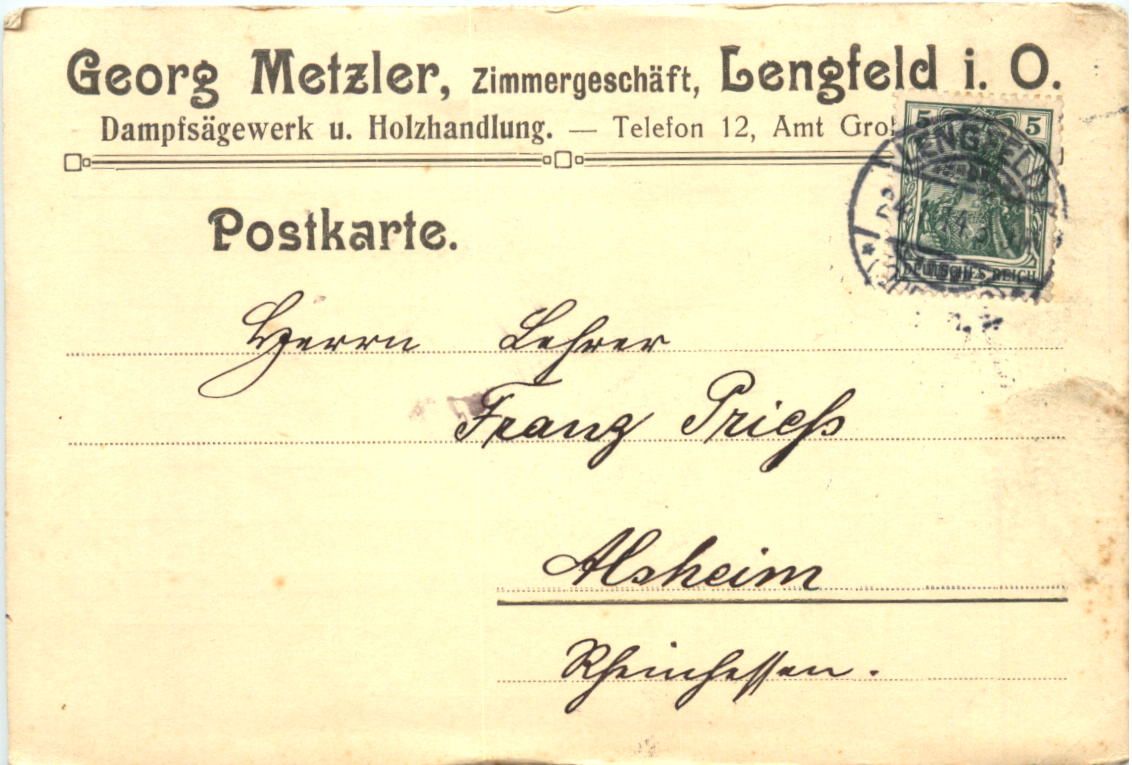 Georg Metzler, Zimmergeschäft, Lengfeld i. O.
Dampfsägewerk u. Holzhandlung. — Telefon 12, Amt
5 5
DEUTSCHES REICH
Postkarte.
Herrn Lehrer
Franz Prieß
Alsheim
Rheinhessen.